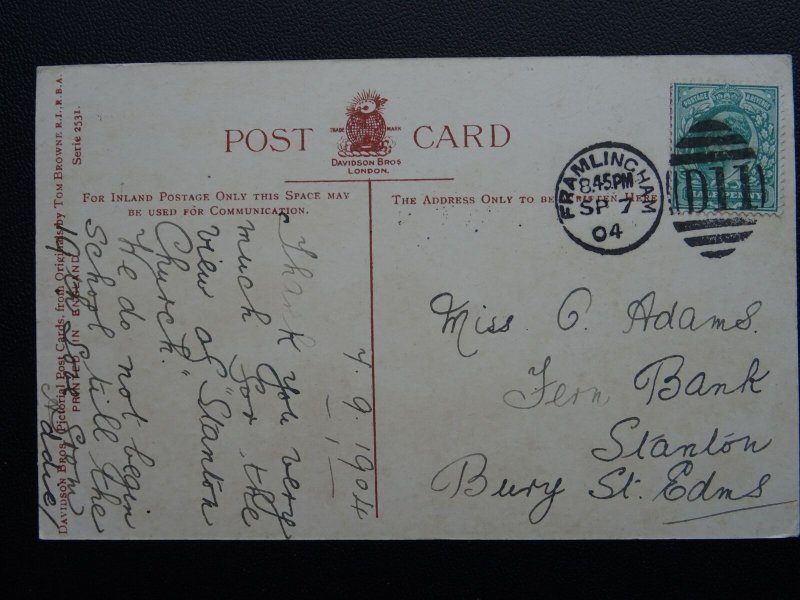 DAVIDSON BROS. PICTORIAL POST CARDS, from Originals by TOM BROWNE R.I., R.B.A.
Serie 2531.
PRINTED IN ENGLAND
POST CARD
TRADE MARK
DAVIDSON BROS
LONDON.
FOR INLAND POSTAGE ONLY THIS SPACE MAY
BE USED FOR COMMUNICATION.
THE ADDRESS ONLY TO BE WRITTEN HERE
FRAMLINGHAM
8.45.PM
SP 7
04
D11
POSTAGE
7. 9. 1904
Thank you very
much for the
view of "Stanton
Church."
We do not begin
School till the
19th.
Addie
Miss O. Adams.
Fern Bank
Stanton
Bury St. Edms